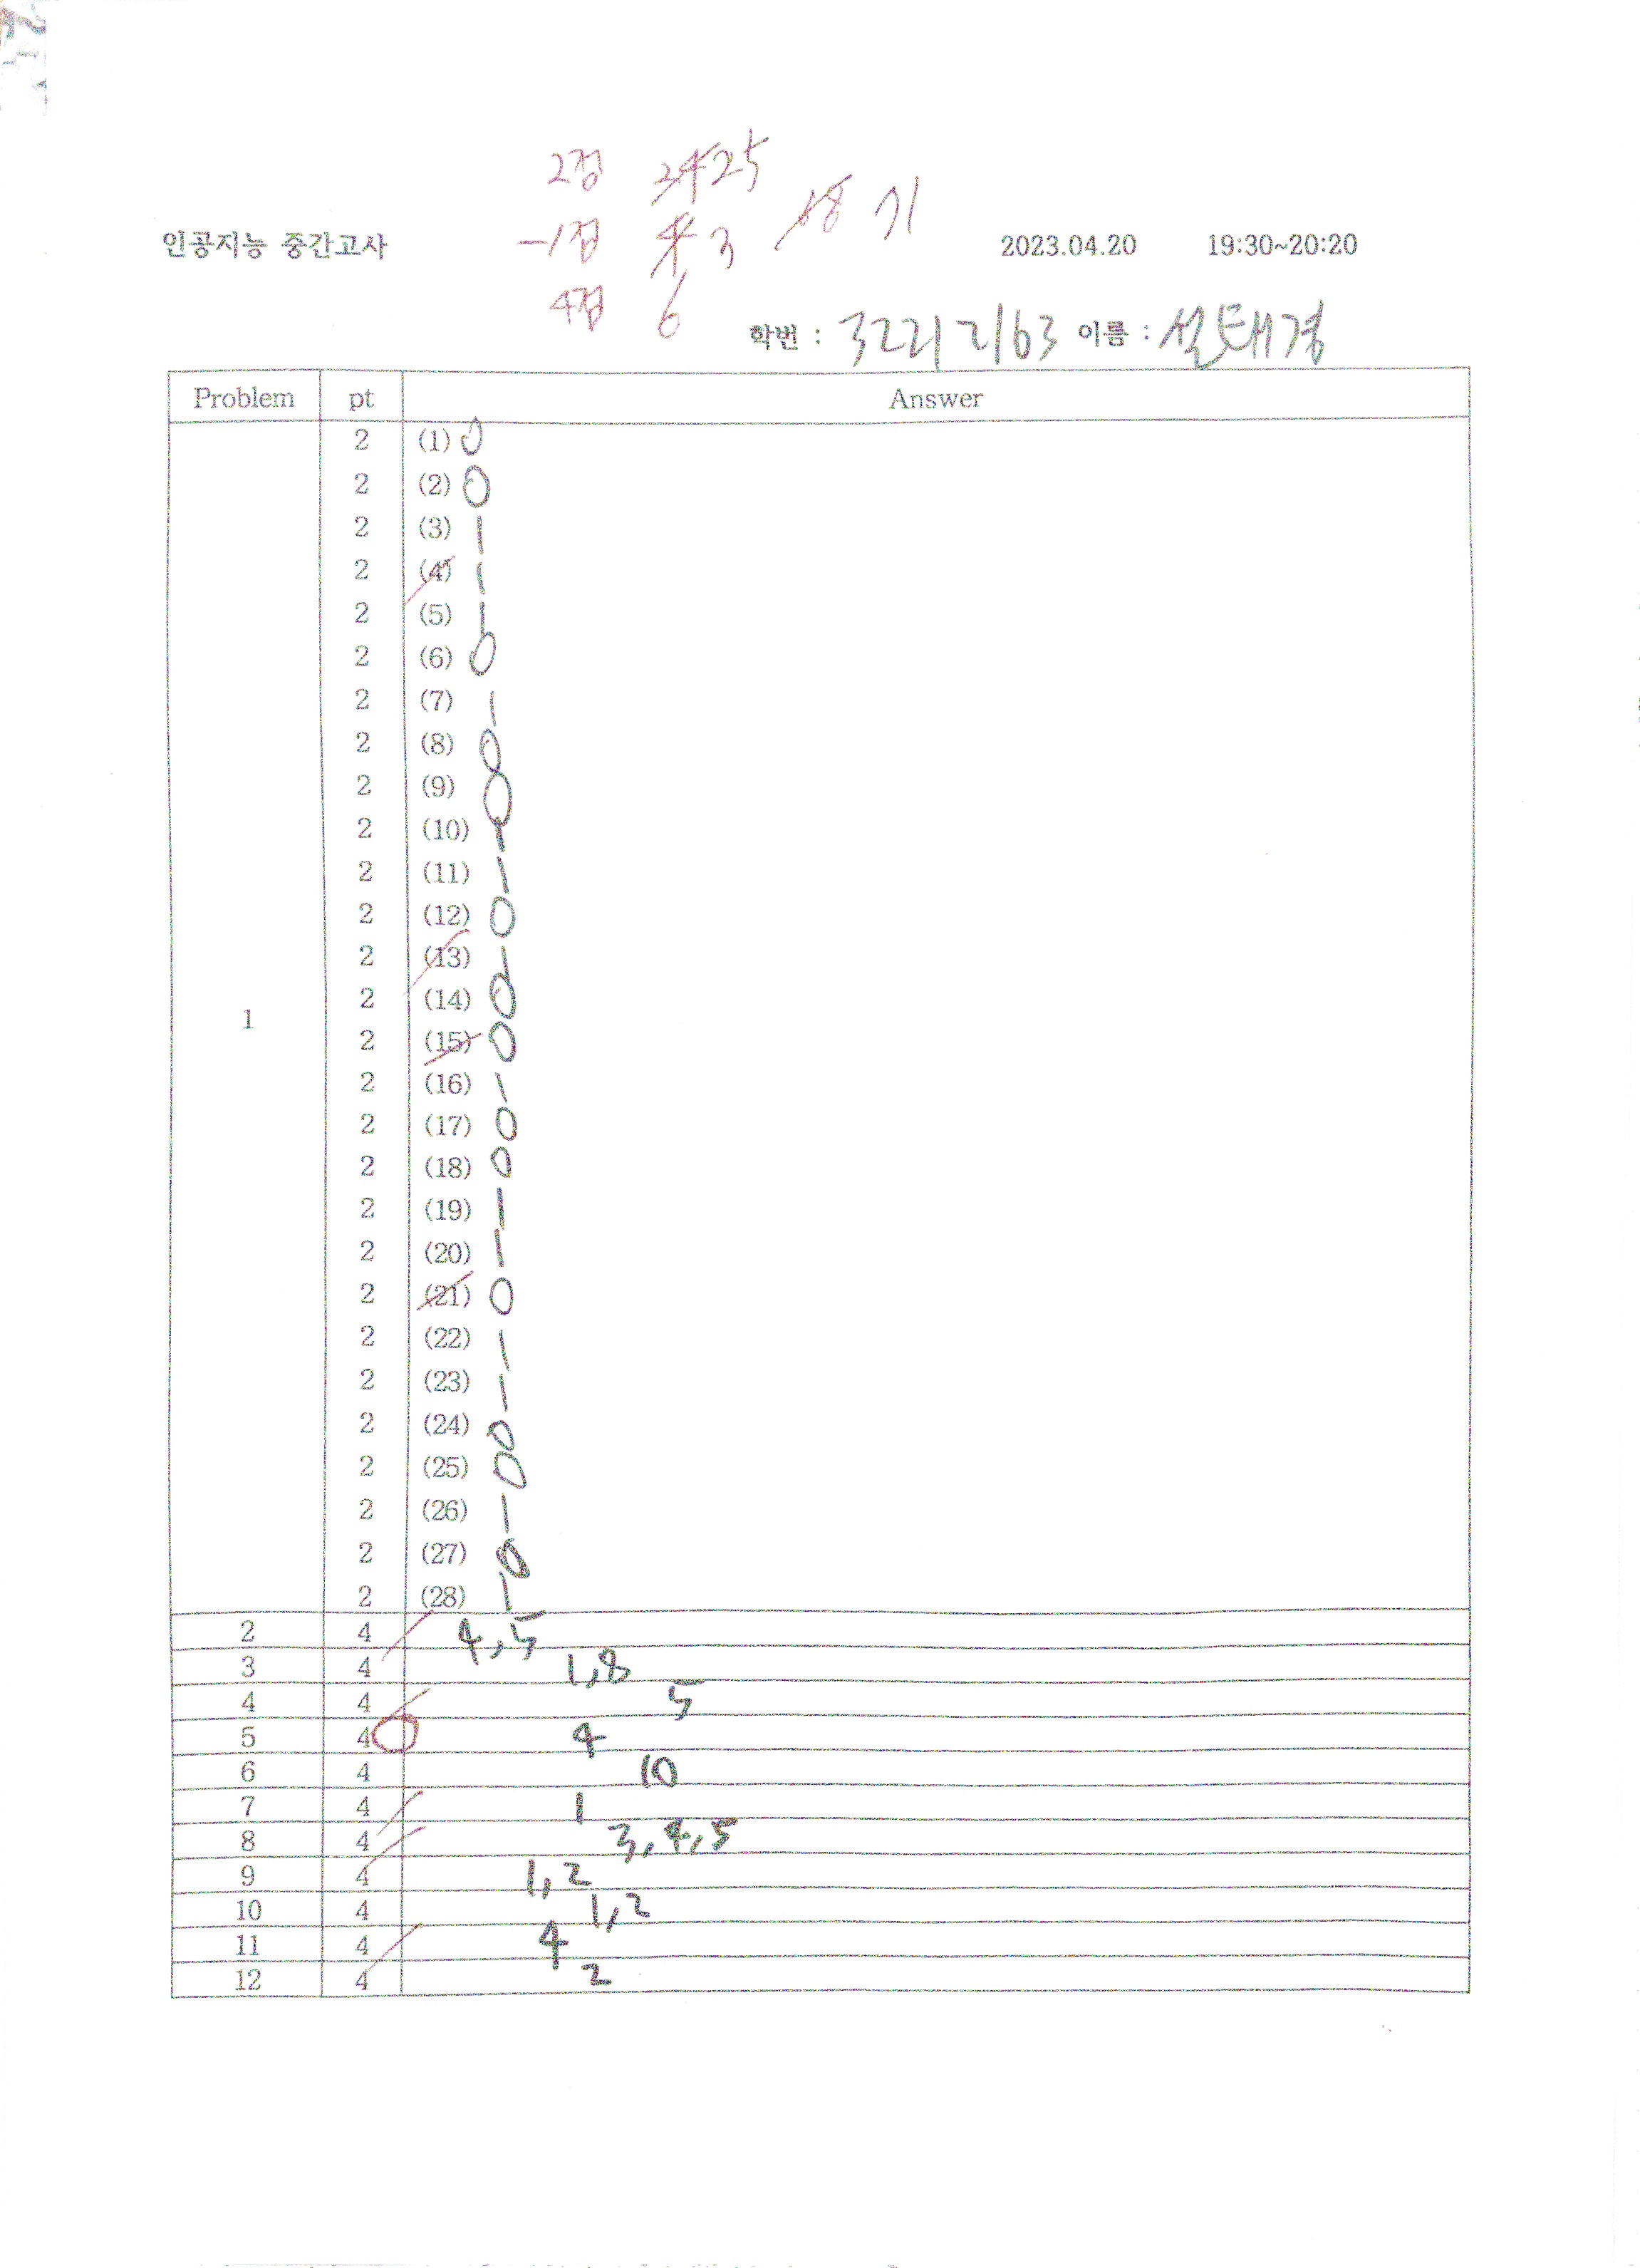 2점 24 25
-1점 4 3 68 71
4점 6
인공지능 중간고사 2023.04.20 19:30~20:20
학번 : 32212163 이름 : 설태경
Problem pt Answer
1
2 (1) 0
2 (2) 0
2 (3) 1
2 (4) 1
2 (5) 1
2 (6) 0
2 (7) 1
2 (8) 0
2 (9) 0
2 (10) 1
2 (11) 1
2 (12) 0
2 (13) 1
2 (14) 0
2 (15) 0
2 (16) 1
2 (17) 0
2 (18) 0
2 (19) 1
2 (20) 1
2 (21) 0
2 (22) 1
2 (23) 1
2 (24) 0
2 (25) 0
2 (26) 1
2 (27) 0
2 (28) 1
2 4 4,5
3 4 1,8
4 4 5
5 4 4
6 4 10
7 4 1
8 4 3,4,5
9 4 1,2
10 4 1,2
11 4 4
12 4 2